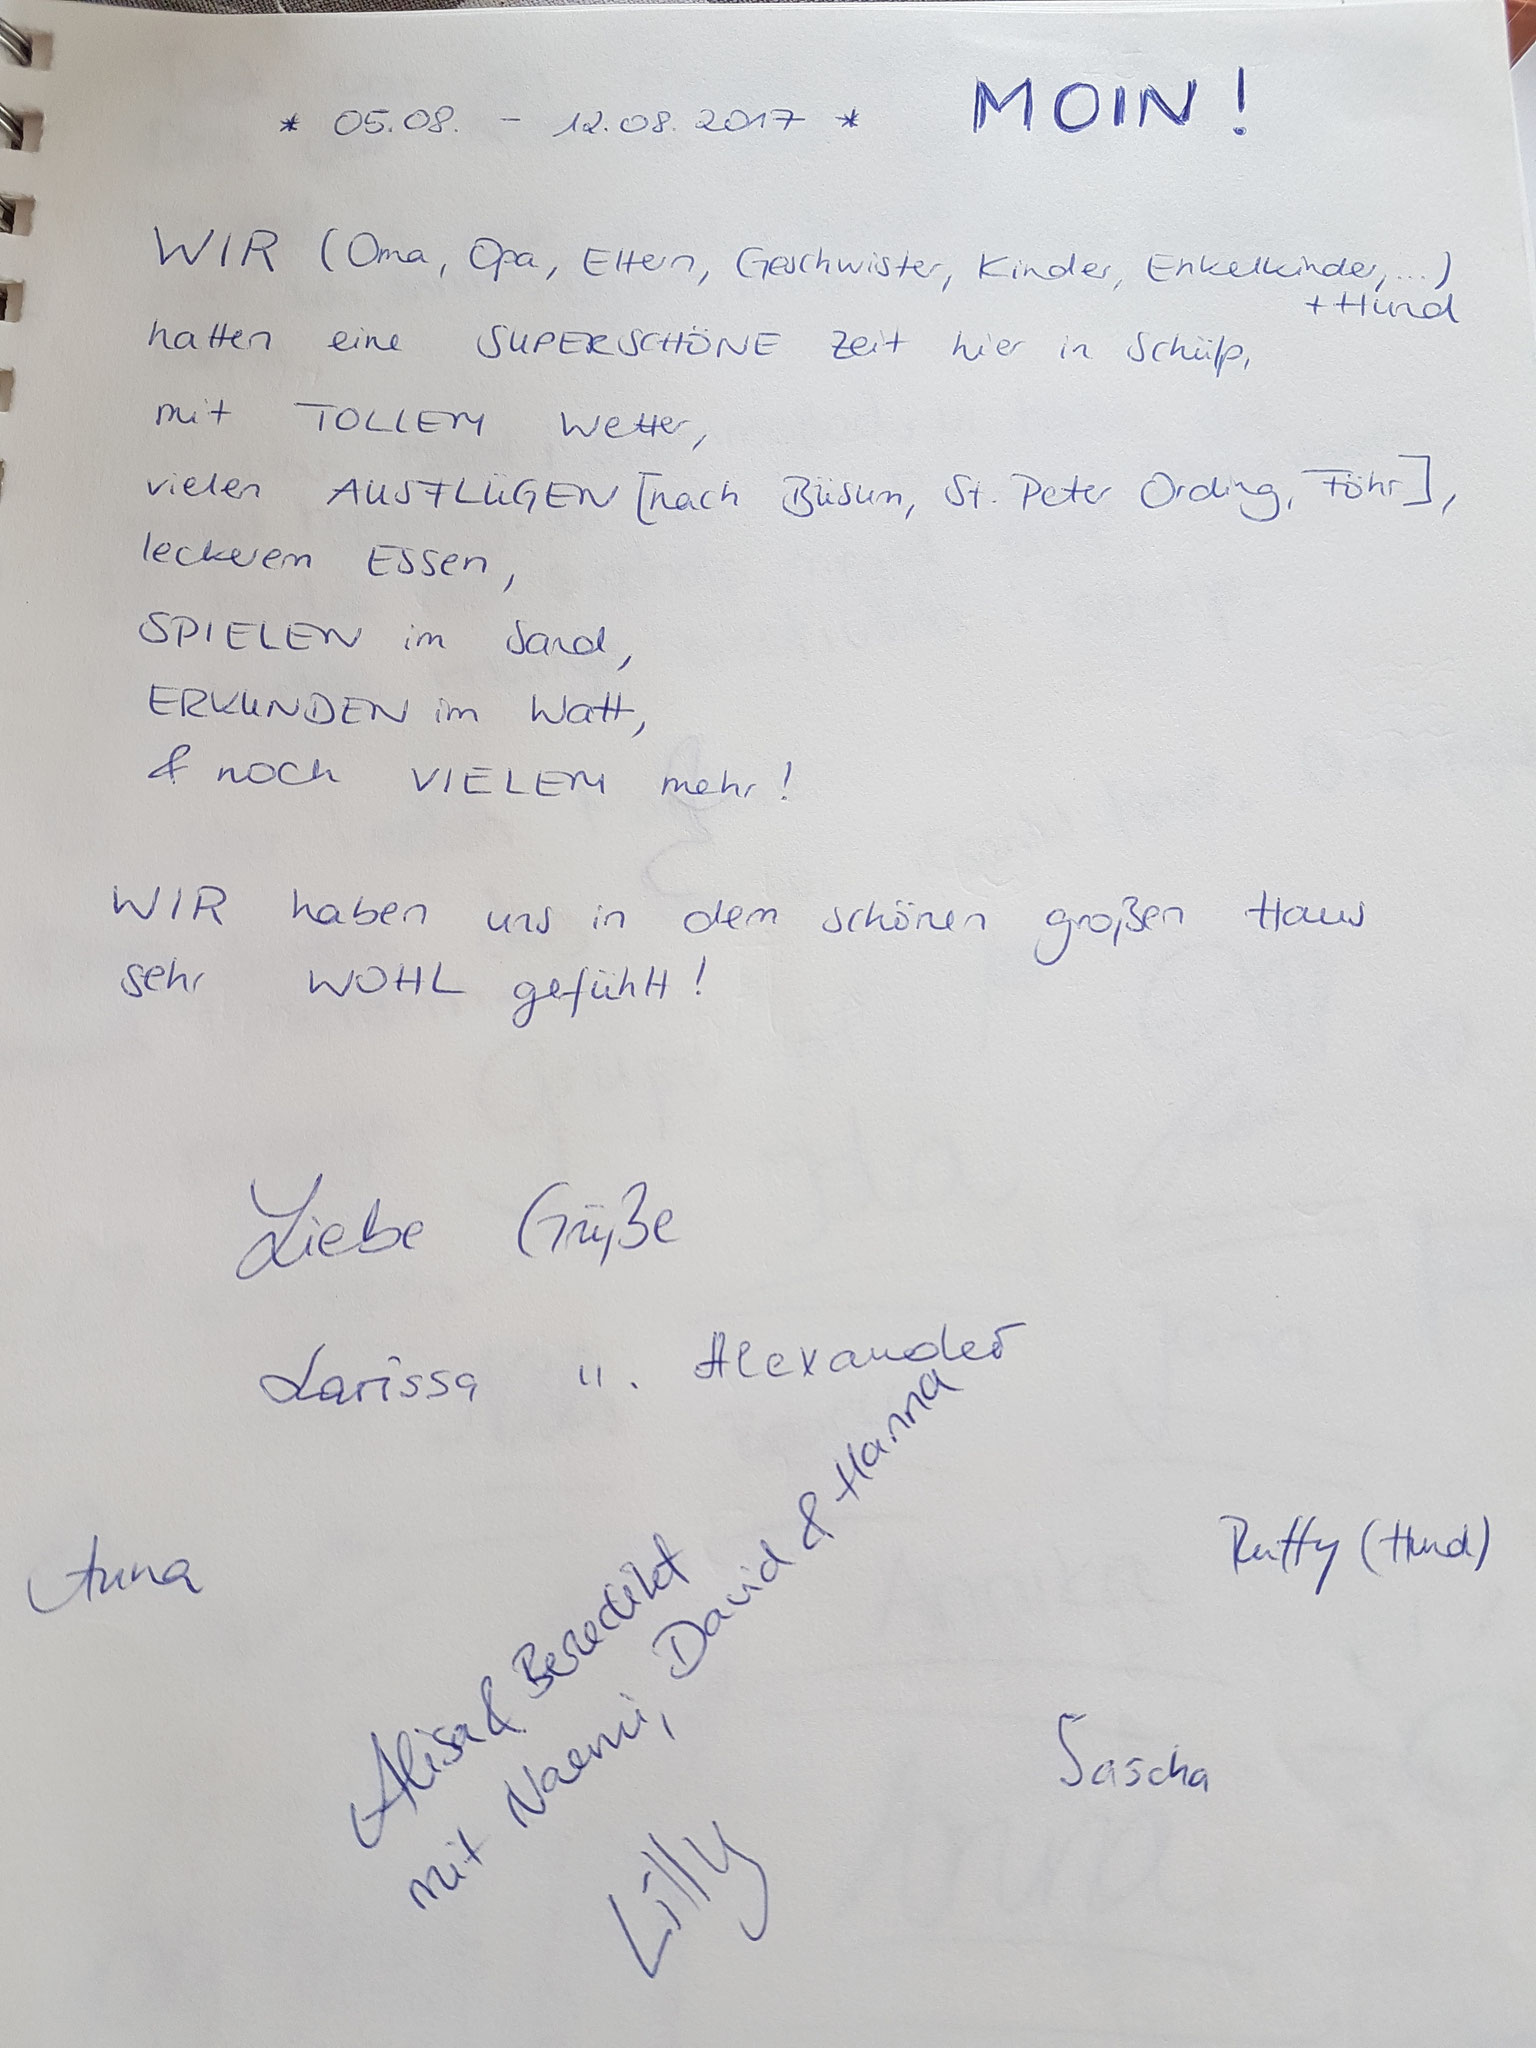 * 05.08. - 12.08.2017 * MOIN!
WIR (Oma, Opa, Eltern, Geschwister, Kinder, Enkelkinder,...)
+ Hund
hatten eine SUPERSCHÖNE Zeit hier in Schülp,
mit TOLLEM Wetter,
vielen AUSFLÜGEN [nach Büsum, St. Peter Ording, Föhr],
leckerem Essen,
SPIELEN im Sand,
ERKUNDEN im Watt,
& noch VIELEM mehr!
WIR haben uns in dem schönen großen Haus
sehr WOHL gefühlt!
Liebe Grüße
Larissa u. Alexander
Anna
Alisa & Benedikt
mit Naemi, David & Hanna
(Hund)
Sascha
Lilly